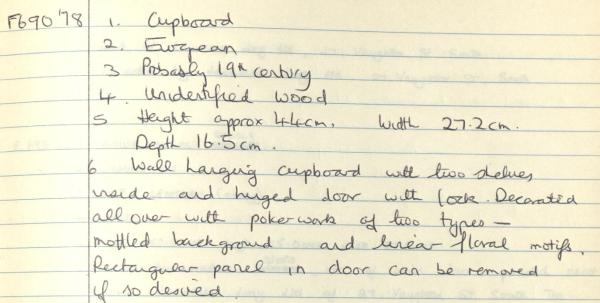 F690'78 1. Cupboard
2. European
3 Probably 19th century
4. Unidentified wood
5 Height approx 44cm. Width 27.2cm.
Depth 16.5cm.
6 Wall hanging cupboard with two shelves
inside and hinged door with lock. Decorated
all over with pokerwork of two types –
mottled background and linear floral motifs.
Rectangular panel in door can be removed
if so desired.